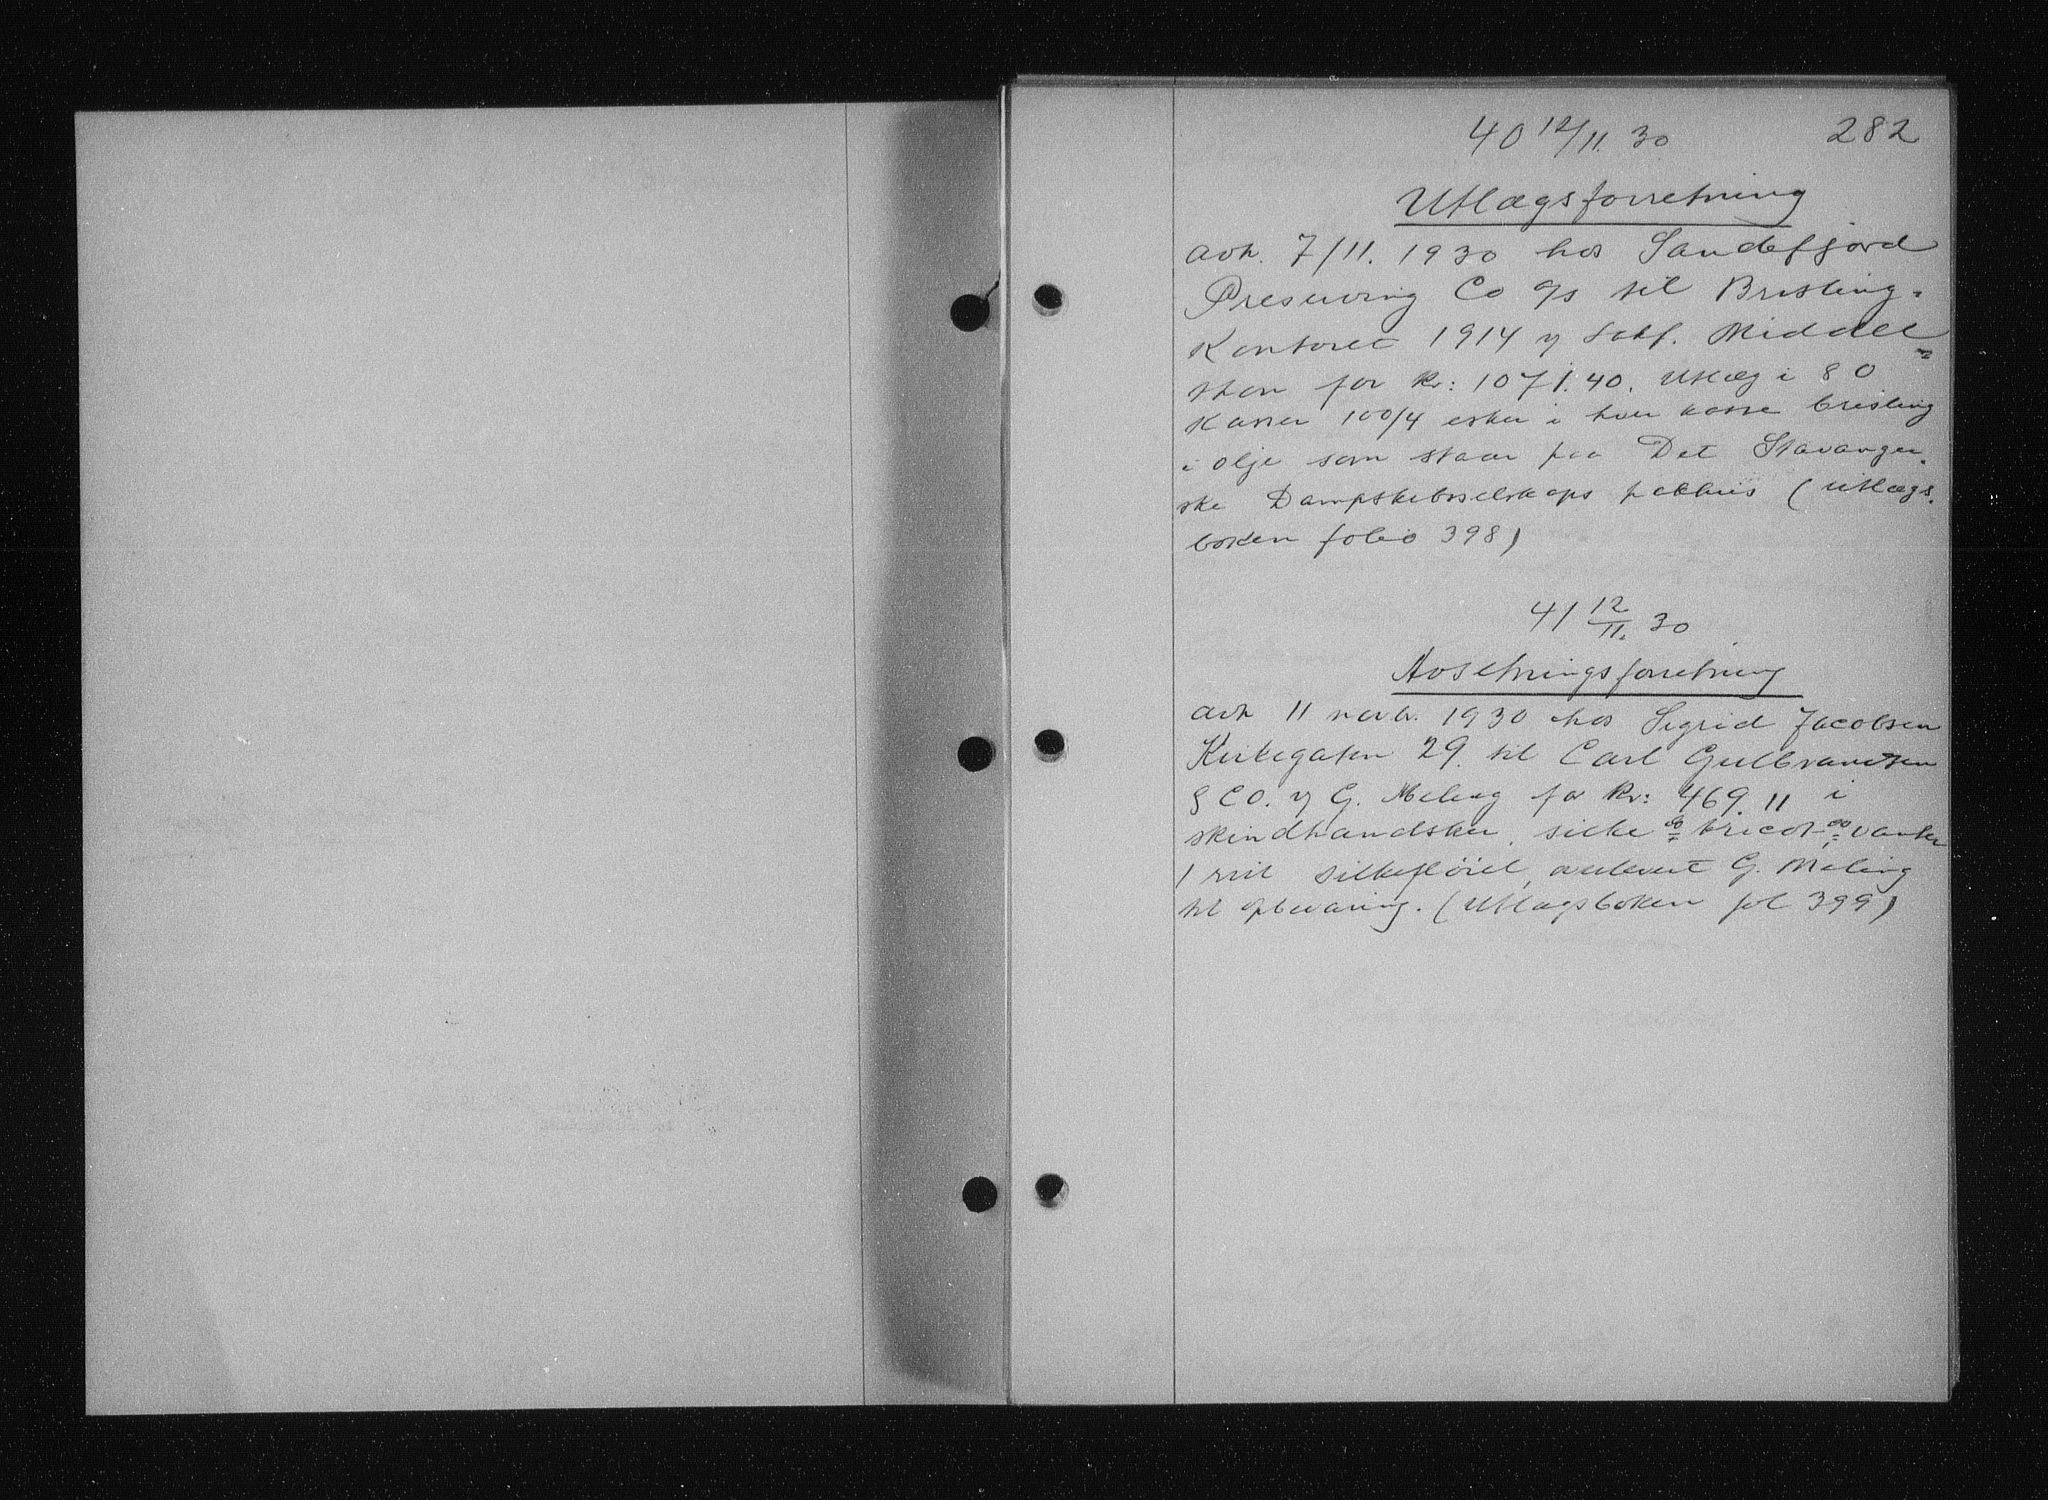 282
40 12/11. 30
Utlægsforretning
avh. 7/11. 1930 hos Sandefjord
Preserving Co A/s til Brisling-
Kontoret 1914 v/ sakf. Middel
thon for Kr: 1071.40. Utlæg i 80
kasser 100/4 esker i hver kasse brisling
i olje som staar paa Det Stavanger-
ske Dampskibsselskaps pakhus (utlægs-
boken folio 398)
41 12/11. 30
Avsetningsforretning
avh 11 novb. 1930 hos Sigrid Jacobsen
Kirkegaten 29. til Carl Gulbrandsen
& CO. v/ G. Meling for Kr: 469.11 i
skindhandsker, silke og tricot vanter
1 silkefløiel, avlevert G. Meling
til opbevaring. (Utlægsboken fol 399)